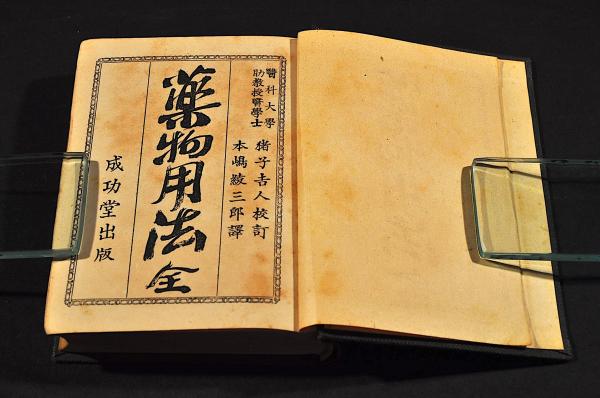 醫科大學
助教授醫學士
猪子吉人校訂
本嶋綾三郎譯
藥物用法全
成功堂出版